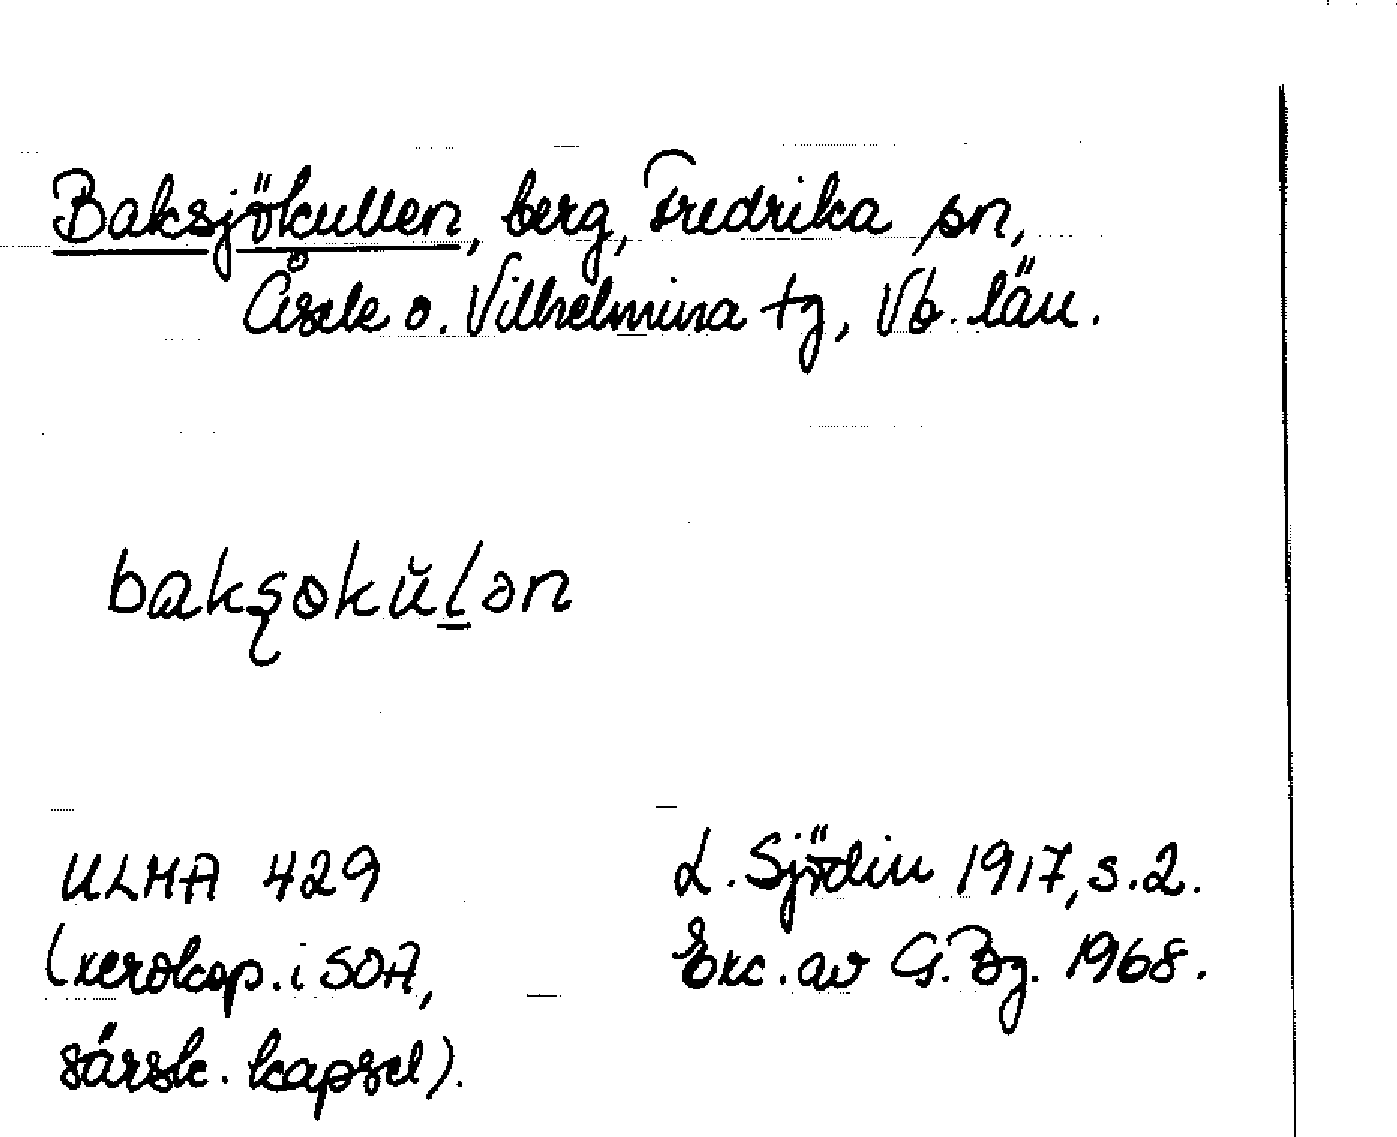 Baksjökullen, berg, Fredrika sn,
Åsele o. Vilhelmina tg, Vb. län.
bakşɵkŭl̲ən
ULMA 429
(xerokop. i SOA,
särsk. kapsel).
L. Sjödin 1917, s. 2.
Exc. av G. Bg. 1968.